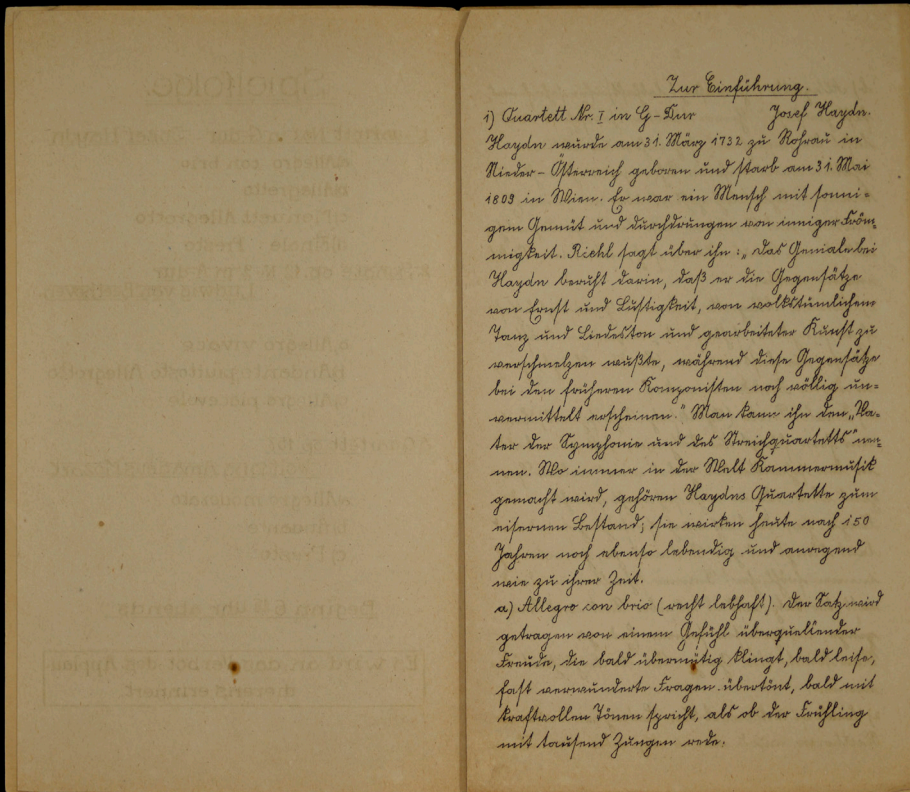 Zur Einführung.
1) Quartett Nr. I in G-Dur Josef Haydn.
Haydn wurde am 31. März 1732 zu Rohrau in
Nieder-Österreich geboren und starb am 31. Mai
1809 in Wien. Er war ein Mensch mit sonni-
gem Gemüt und durchdrungen von inniger Fröm-
migkeit. Riehl sagt über ihn: „Das Geniale bei
Haydn beruht darin, daß er die Gegensätze
von Ernst und Lustigkeit, von volkstümlichem
Tanz und Liedeston und gearbeiteter Kunst zu
verschmelzen wußte, während diese Gegensätze
bei den früheren Komponisten noch völlig un-
vermittelt erscheinen." Man kann ihn den „Va-
ter der Symphonie und des Streichquartetts" nen-
nen. Wo immer in der Welt Kammermusik
gemacht wird, gehören Haydns Quartette zum
eisernen Bestand; sie wirken heute nach 150
Jahren noch ebenso lebendig und anregend
wie zu ihrer Zeit.
a) Allegro con brio (recht lebhaft). Der Satz wird
getragen von einem Gefühl überquellender
Freude, die bald übermütig klingt, bald leise,
fast verwunderte Fragen übertönt, bald mit
kraftvollen Tönen spricht, als ob der Frühling
mit tausend Zungen rede.